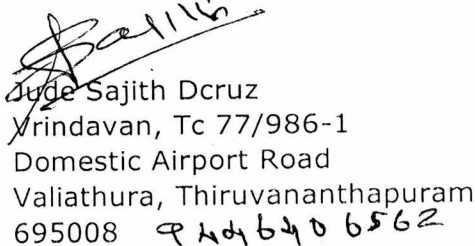 Jude Sajith Dcruz
Vrindavan, Tc 77/986-1
Domestic Airport Road
Valiathura, Thiruvananthapuram
695008